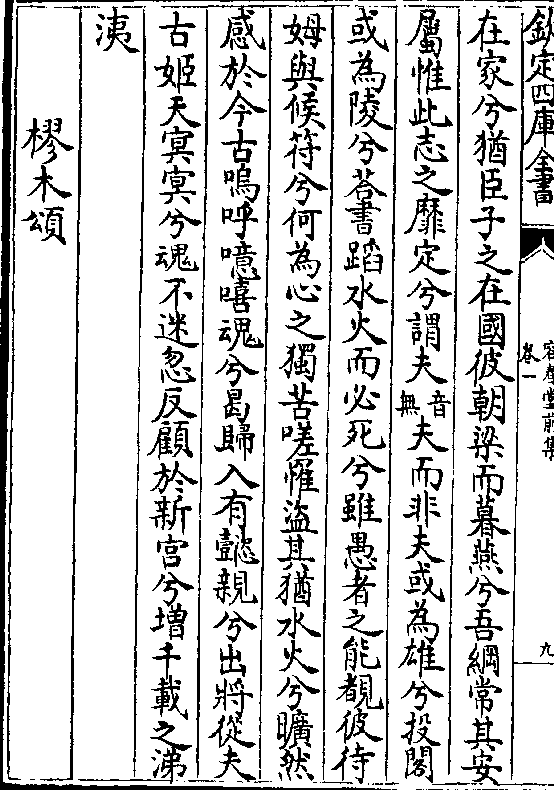 欽定四庫全書
容春堂前集
卷一
九
在家兮猶臣子之在國彼朝梁而暮燕兮吾綱常其安
屬惟此志之靡定兮謂夫音無夫而非夫或為雄兮投閣
或為陵兮荅書蹈水火而必死兮雖愚者之能覩彼待
姆與候符兮何為心之獨苦嗟罹盜其猶水火兮曠然
感於今古嗚呼噫嘻魂兮曷歸入有懿親兮出將從夫
古姬天冥冥兮魂不迷忽反顧於新宫兮増千載之涕
洟
樛木頌